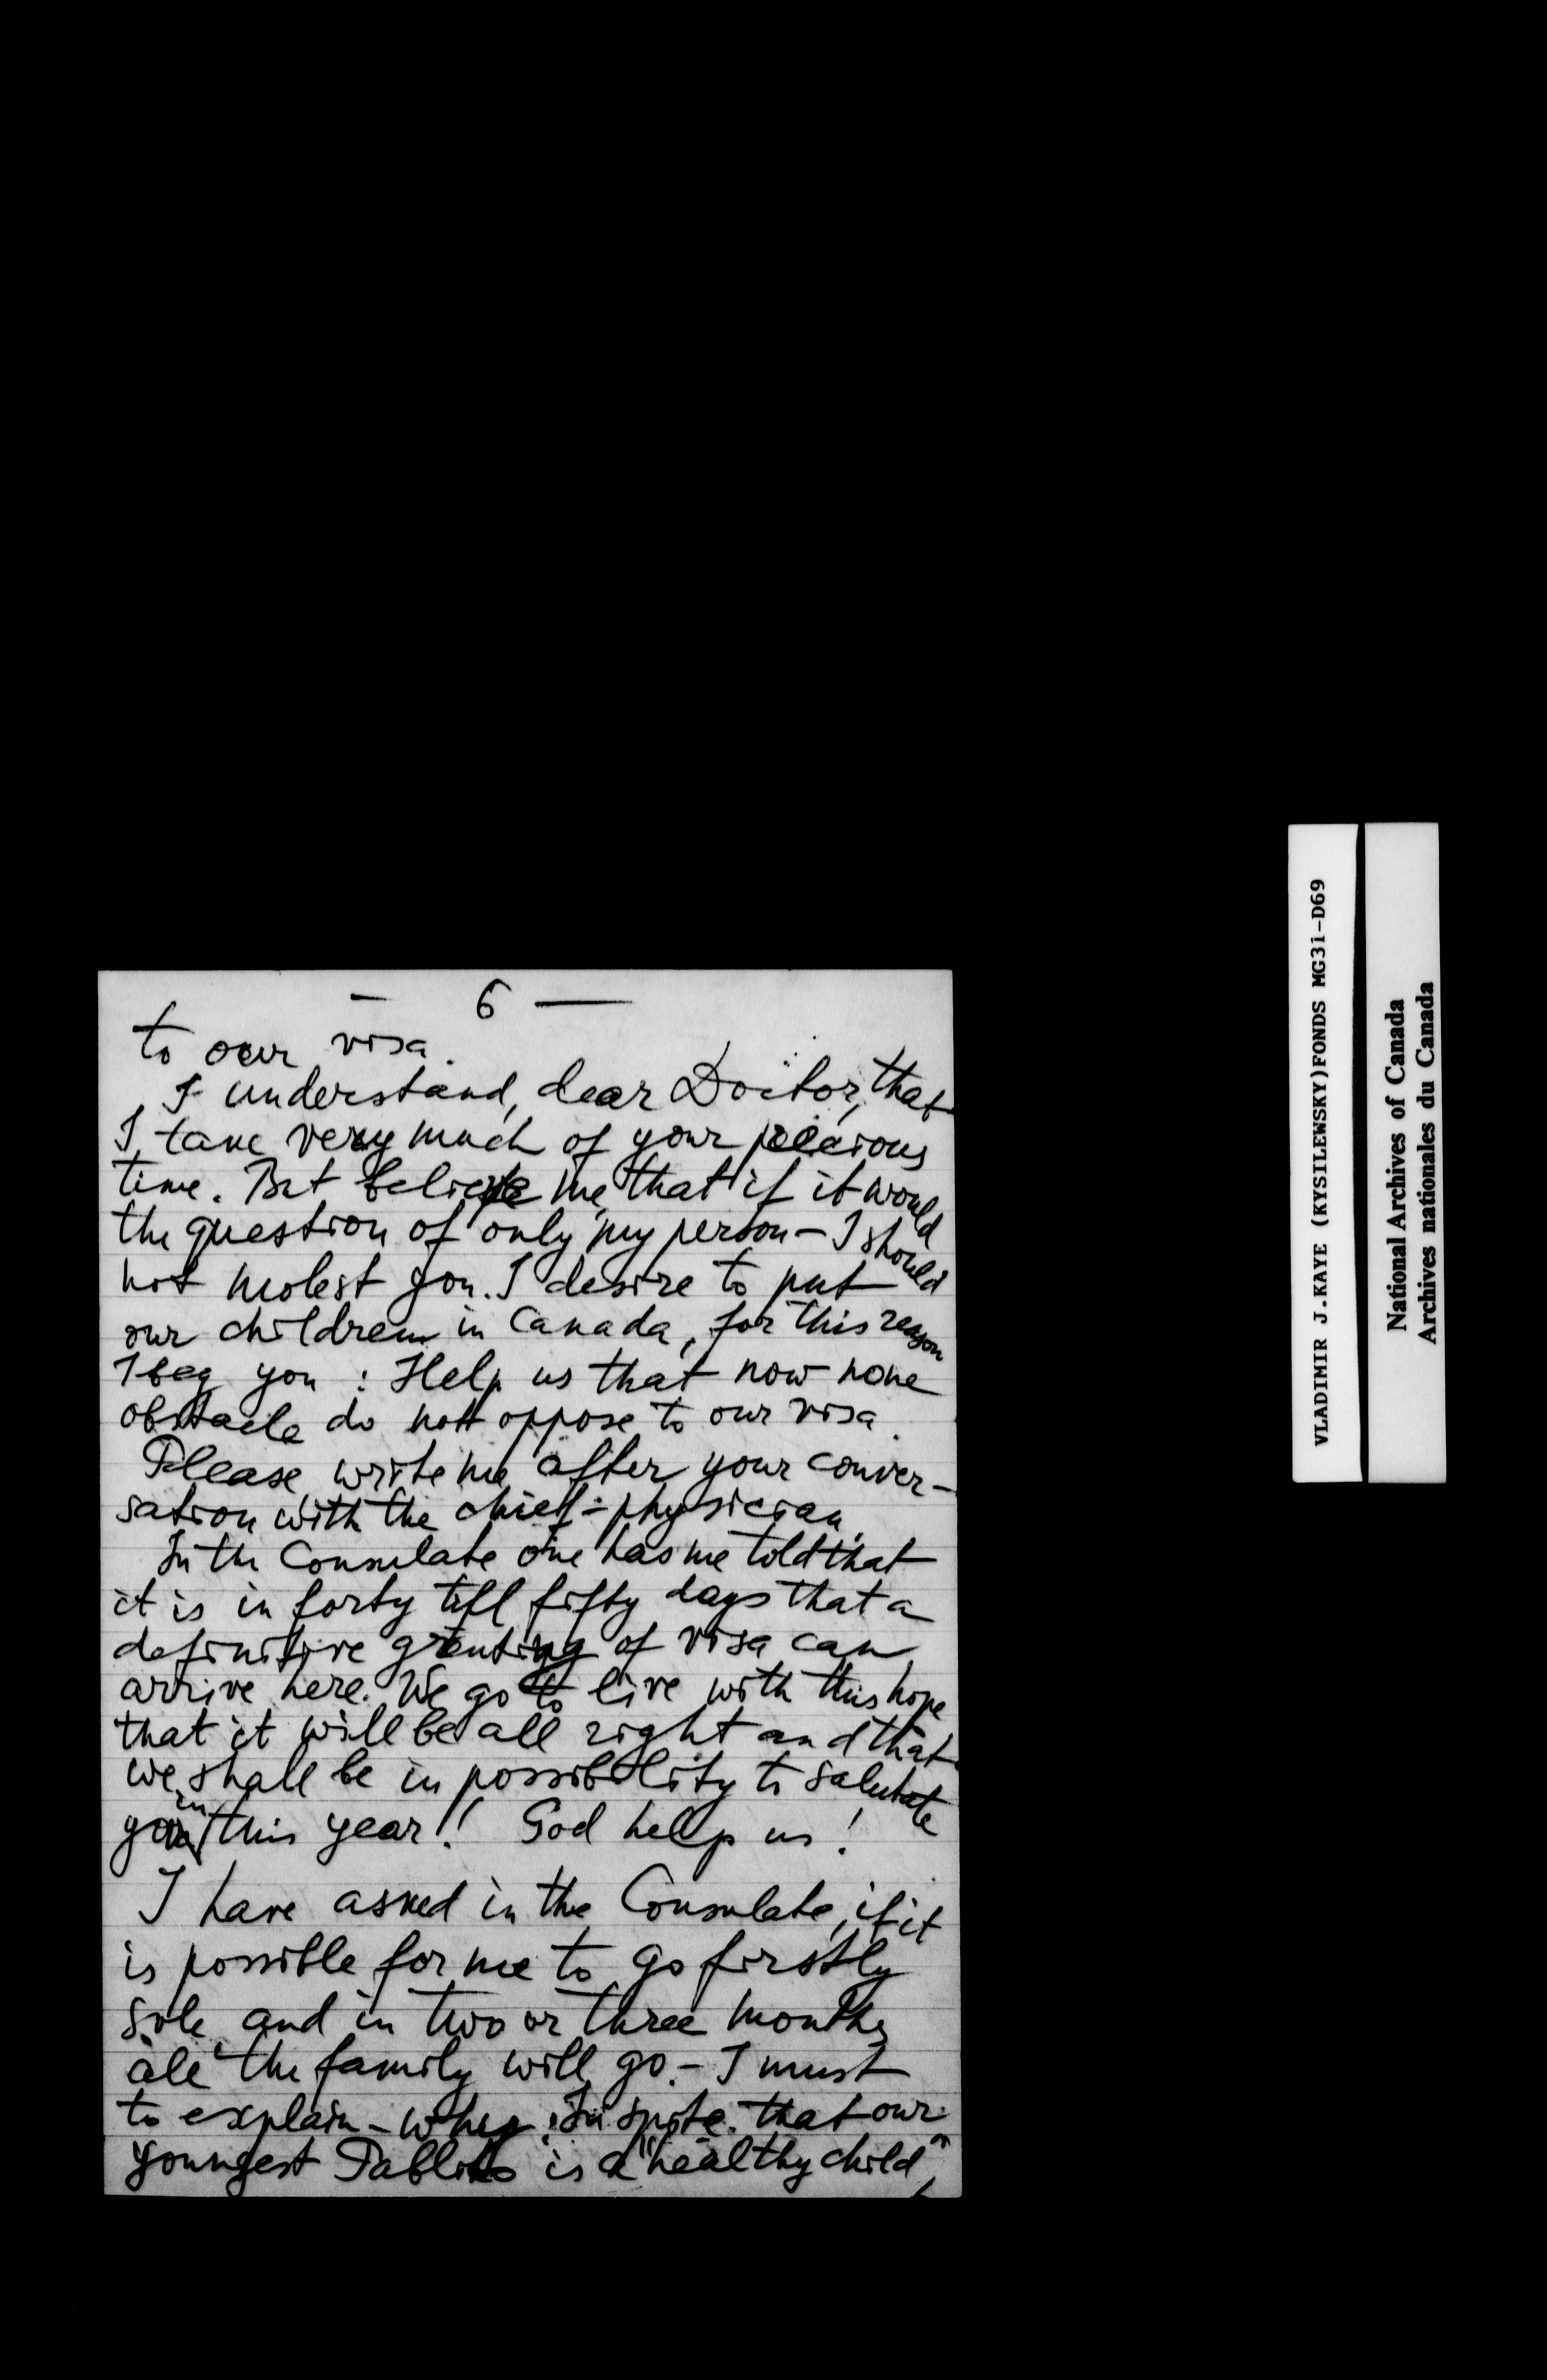 — 6 —
to our visa.
I understand, dear Doctor, that
I take very much of your precious
time. But believe me, that if it would
the question of only my person – I should
not molest you. I desire to put
our children in Canada, for this reason
I beg you : Help us that now none
obstacle do not oppose to our visa.
Please write me after your conver-
sation with the chief-physician.
In the Consulate one has me told that
it is in forty till fifty days that a
definitive granting of visa can
arrive here. We go to live with this hope
that it will be all right and that
we shall be in possibility to salutate
you in this year! God help us!
I have asked in the Consulate, if it
is possible for me to go firstly
sole and in two or three months
all the family will go. – I must
to explain – why: In spite that our
youngest Pablito is a "healthy child",
VLADIMIR J.KAYE (KYSILEWSKY)FONDS MG31-D69
National Archives of Canada
Archives nationales du Canada